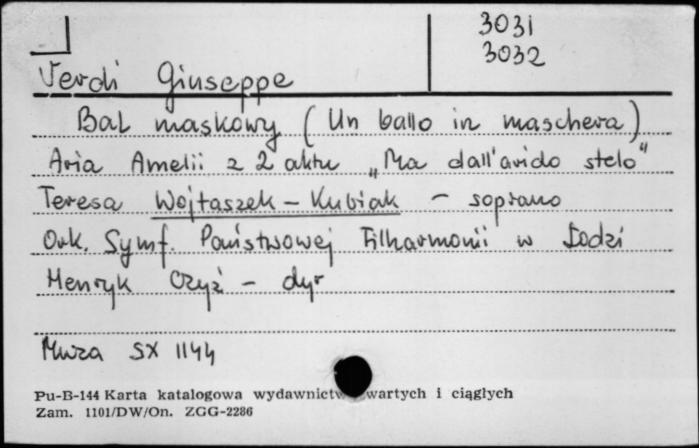 3031
3032
Verdi Giuseppe
Bal maskowy (Un ballo in maschera)
Aria Amelii z 2 aktu „Ma dall'arido stelo"
Teresa Wojtaszek-Kubiak - soprano
Ork. Symf. Państwowej Filharmonii w Łodzi
Henryk Czyż - dyr
Muza SX 1144
Pu-B-144 Karta katalogowa wydawnictw zwartych i ciągłych
Zam. 1101/DW/On. ZGG-2286